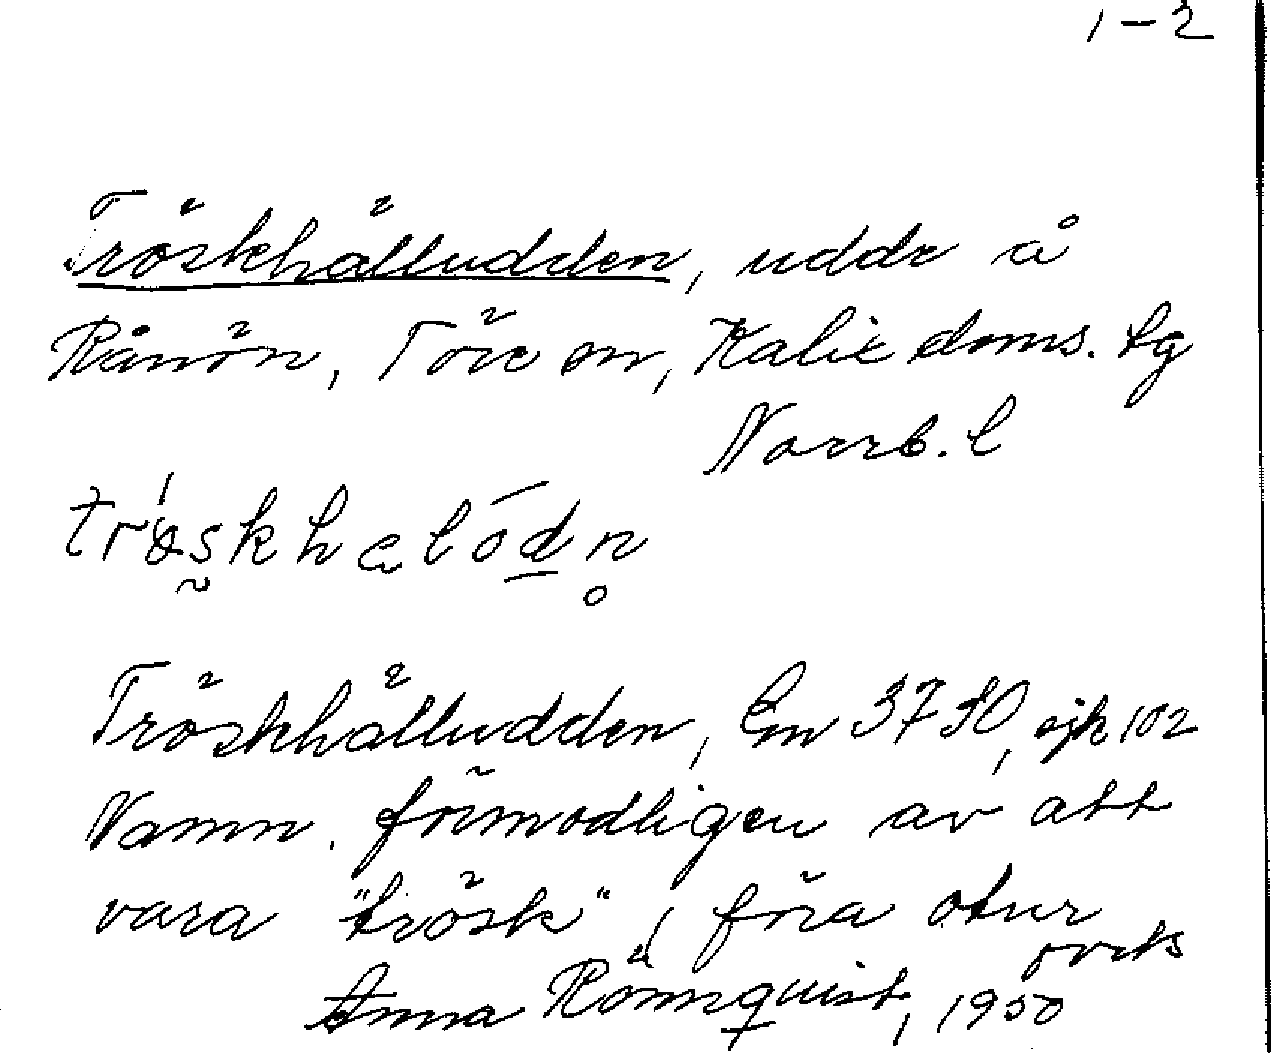 1-2
Tröskhålludden, udde å
Rånön, Töre sn, Kalix doms. lg
Norrb. l
Tröskhålludden, Em 3750, sjk 102
Namn. förmodligen av att
vara "trösk", föra otur
Anna Rönnquist, 1950